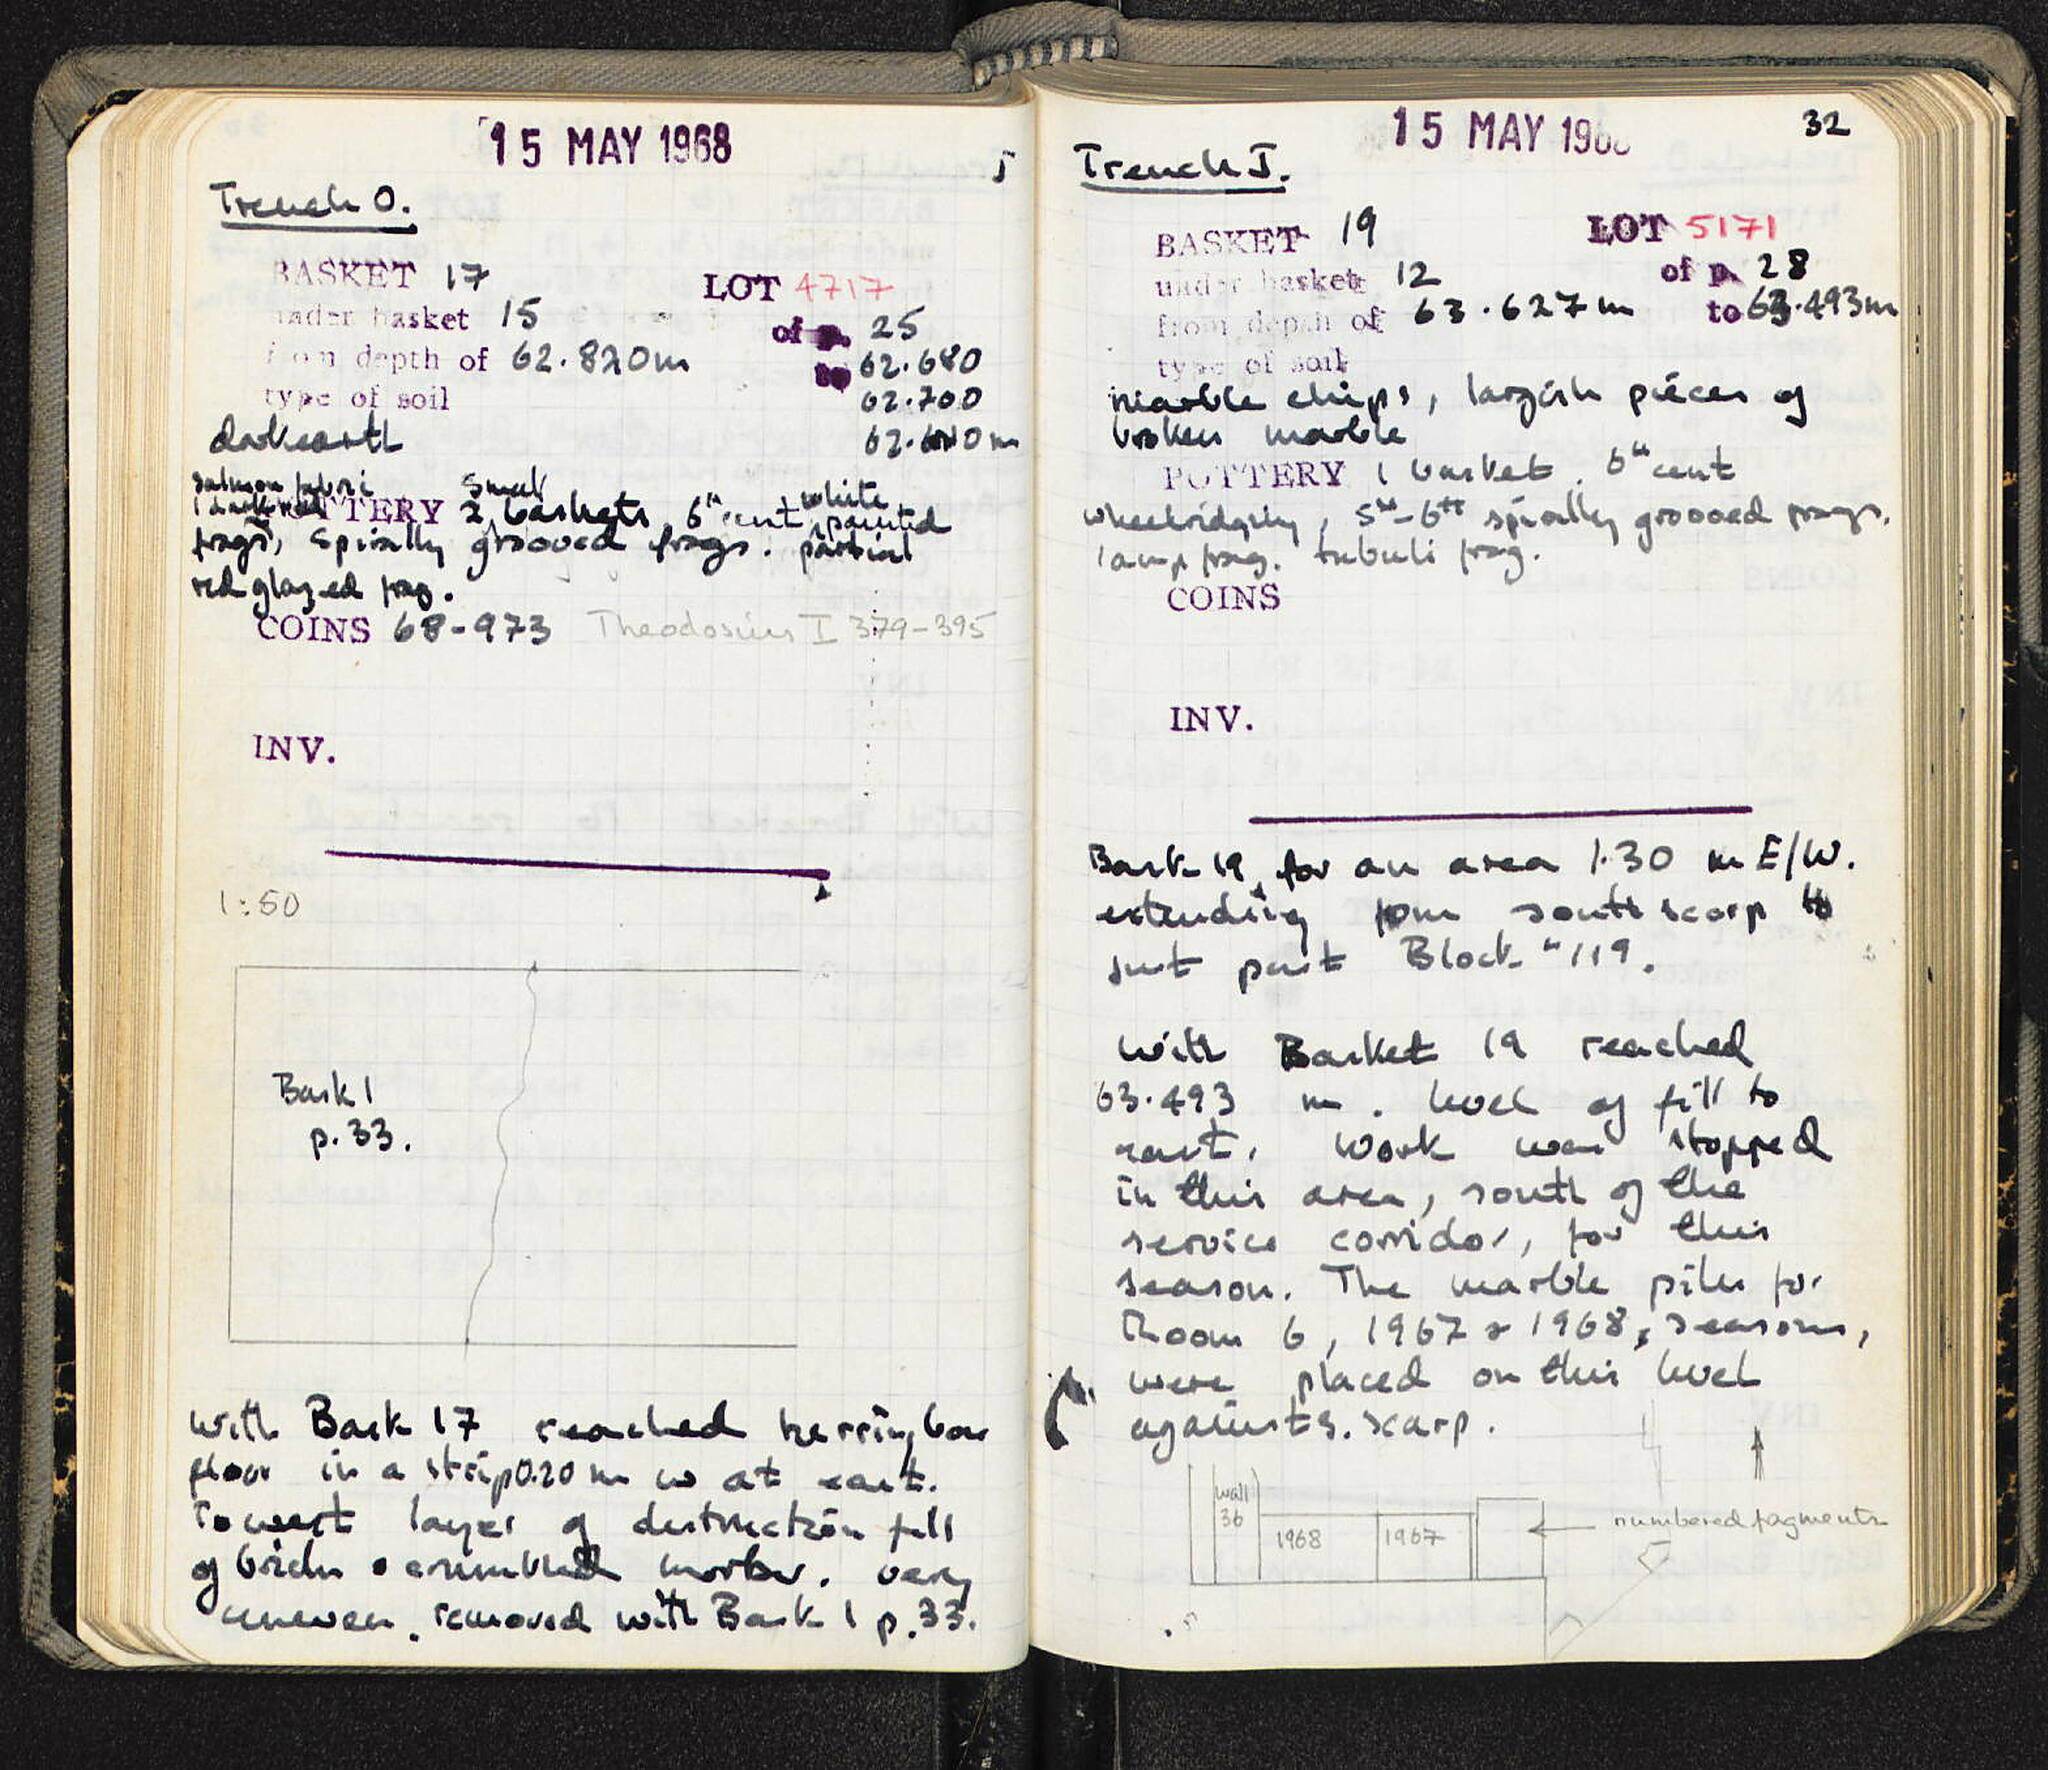 15 MAY 1968
J
Trench O.
BASKET 17
LOT 4717
under basket 15
of p. 25
from depth of 62.820m
to 62.680
type of soil
62.700
dark earth
62.640m
salmon fabric
small
1 dark red
POTTERY 2 baskets, 6th cent, white painted
frags, Spirally grooved frags. partial
red glazed frag.
COINS 68-973 Theodosius I 379-395
INV.
1:50
Bask 1
p. 33.
With Bask 17 reached herringbone
floor in a strip 0.20 m w at east.
Lowest layer of destruction fill
of bricks & crumbled mortar. very
uneven. removed with Bask 1 p. 33.
15 MAY 196
32
Trench J.
BASKET 19
LOT 5171
under basket 12
of p. 28
from depth of 63.627m
to 63.493m
type of soil
marble chips, largish pieces of
broken marble
POTTERY 1 basket. 6th cent
wheelridging, 5th-6th spirally grooved frags.
lamp frag. tubuli frag.
COINS
INV.
Bask 19, for an area 1.30 m E/W.
extending from south scarp to
just past Block "119.
With Basket 19 reached
63.493 m. level of fill to
east. Work was stopped
in this area, south of the
service corridor, for this
season. The marble piles for
Room 6, 1967 & 1968, seasons,
were placed on this level
against s. scarp.
wall
36
1968
1967
numbered fagments